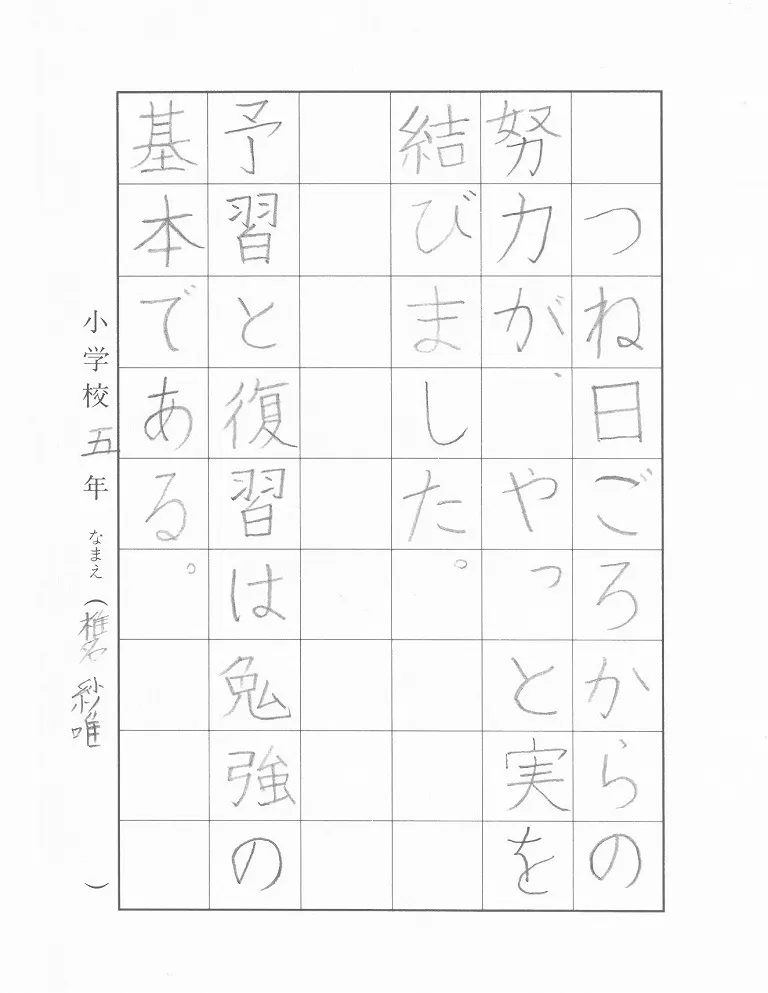 つね日ごろからの
努力が、やっと実を
結びました。
予習と復習は勉強の
基本である。
小学校五年 なまえ（椎名 紗唯）